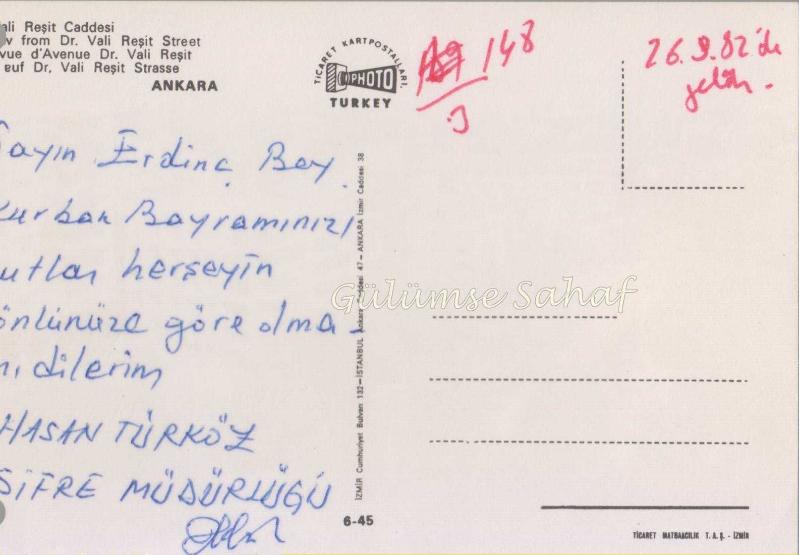 ali Reşit Caddesi
w from Dr. Vali Reşit Street
vue d'Avenue Dr. Vali Reşit
auf Dr, Vali Reşit Strasse
ANKARA
TİCARET KARTPOSTALLARI,
PHOTO
TURKEY
148
26.9.82'de
Sayın Erdinç Bey
Kurban Bayramınızı
utlar herşeyin
önlünüze göre olma-
nı dilerim
HASAN TÜRKÖZ
ŞİFRE MÜDÜRLÜĞÜ
İZMİR Cumhuriyet Bulvarı 132—İSTANBUL Ankara Caddesi 47 — ANKARA İzmir Caddesi 38
Gülümse Sahaf
6-45
TİCARET MATBAACILIK T. A. Ş. - İZMİR